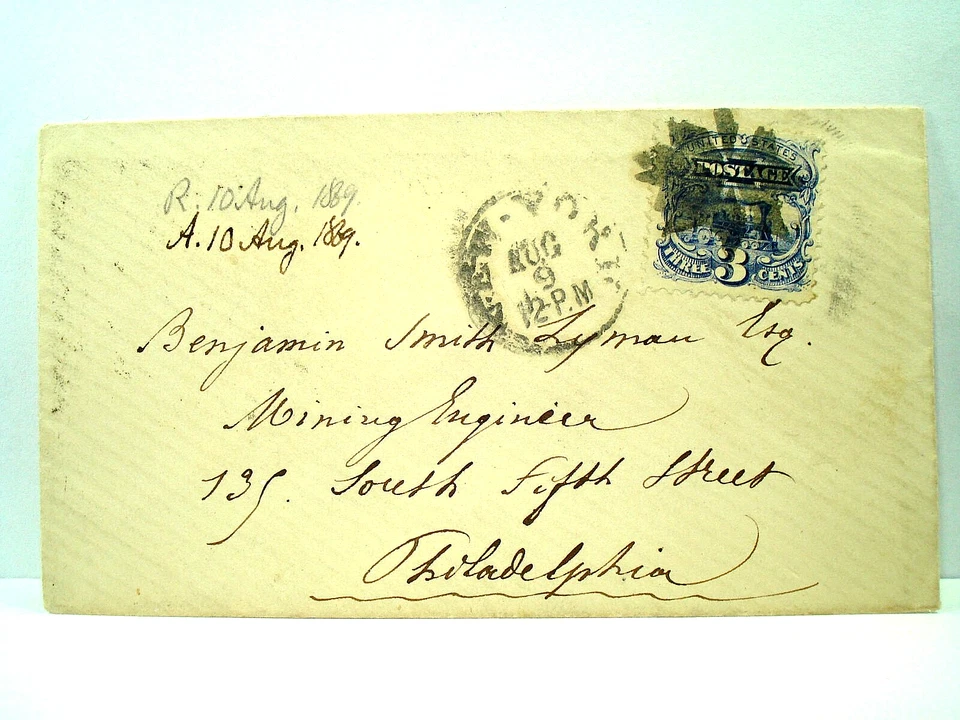 R. 10 Aug. 1889.
A. 10 Aug. 1889.
NEW-YORK
AUG
9
12-P.M
UNITED STATES
POSTAGE
THREE 3 CENTS
Benjamin Smith Lyman Esq.
Mining Engineer
135. South Fifth Street
Philadelphia